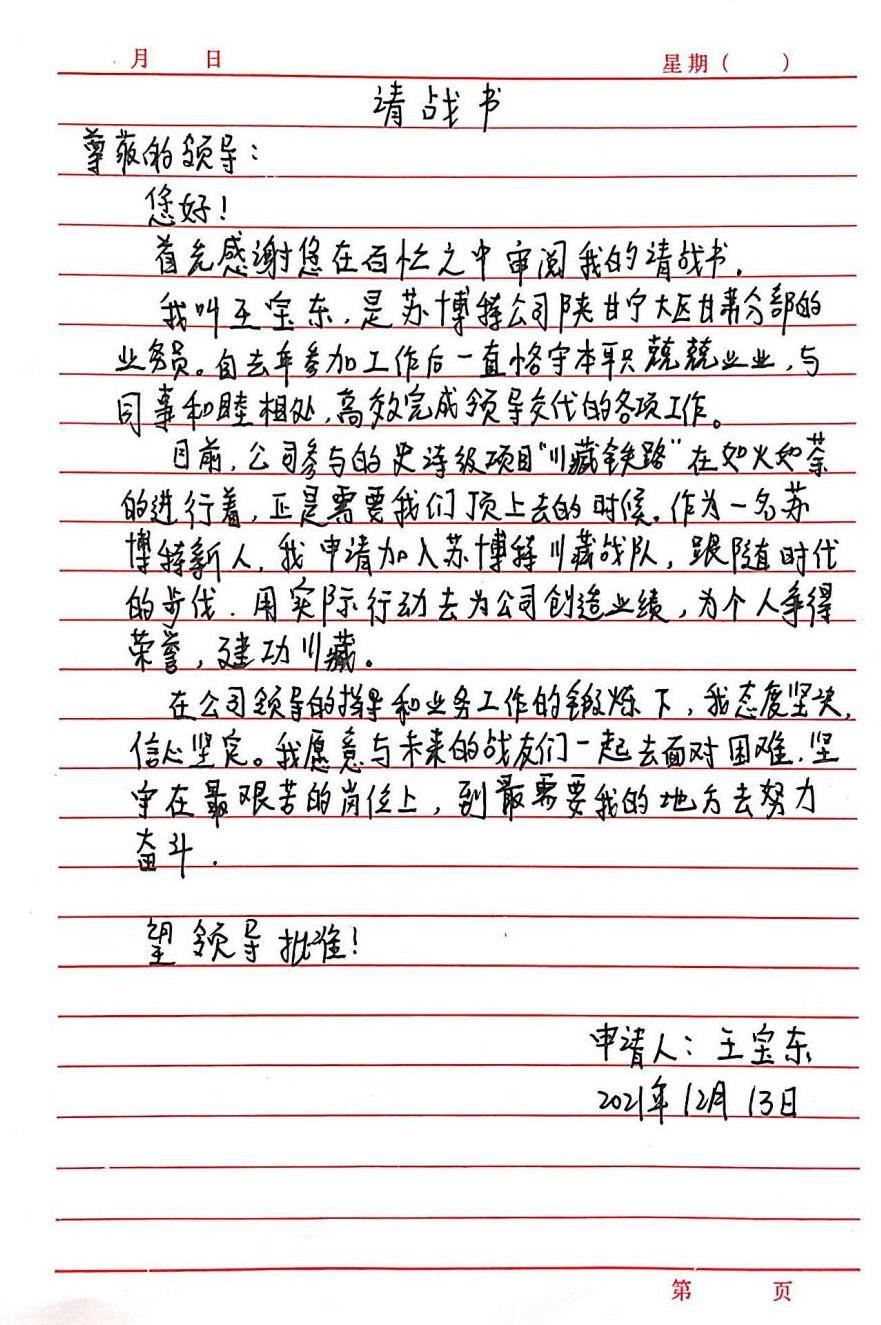 月 日 星期( )
请战书
尊敬的领导:
您好!
首先感谢您在百忙之中审阅我的请战书.
我叫王宝东,是苏博特公司陕甘宁大区甘肃分部的
业务员。自去年参加工作后一直恪守本职兢兢业业,与
同事和睦相处,高效完成领导交代的各项工作。
目前,公司参与的史诗级项目“川藏铁路”在如火如荼
的进行着,正是需要我们顶上去的时候.作为一名苏
博特新人,我申请加入苏博特川藏战队,跟随时代
的步伐.用实际行动去为公司创造业绩,为个人争得
荣誉,建功川藏。
在公司领导的指导和业务工作的锻炼下,我态度坚决,
信心坚定。我愿意与未来的战友们一起去面对困难,坚
守在最艰苦的岗位上,到最需要我的地方去努力
奋斗.
望领导批准!
申请人:王宝东
2021年12月13日
第 页